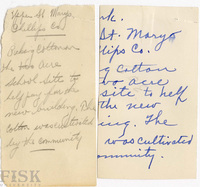 Veper St. Marys
Phillips Co.
Baking Cotton on
the two acre
school site to
help pay for the
new building. The
cotton was cultivated
by the community
k.
St. Marys
lips Co.
g cotton
two acre
site to help
the new
ing. The
was cultivated
mmunity.
FISK